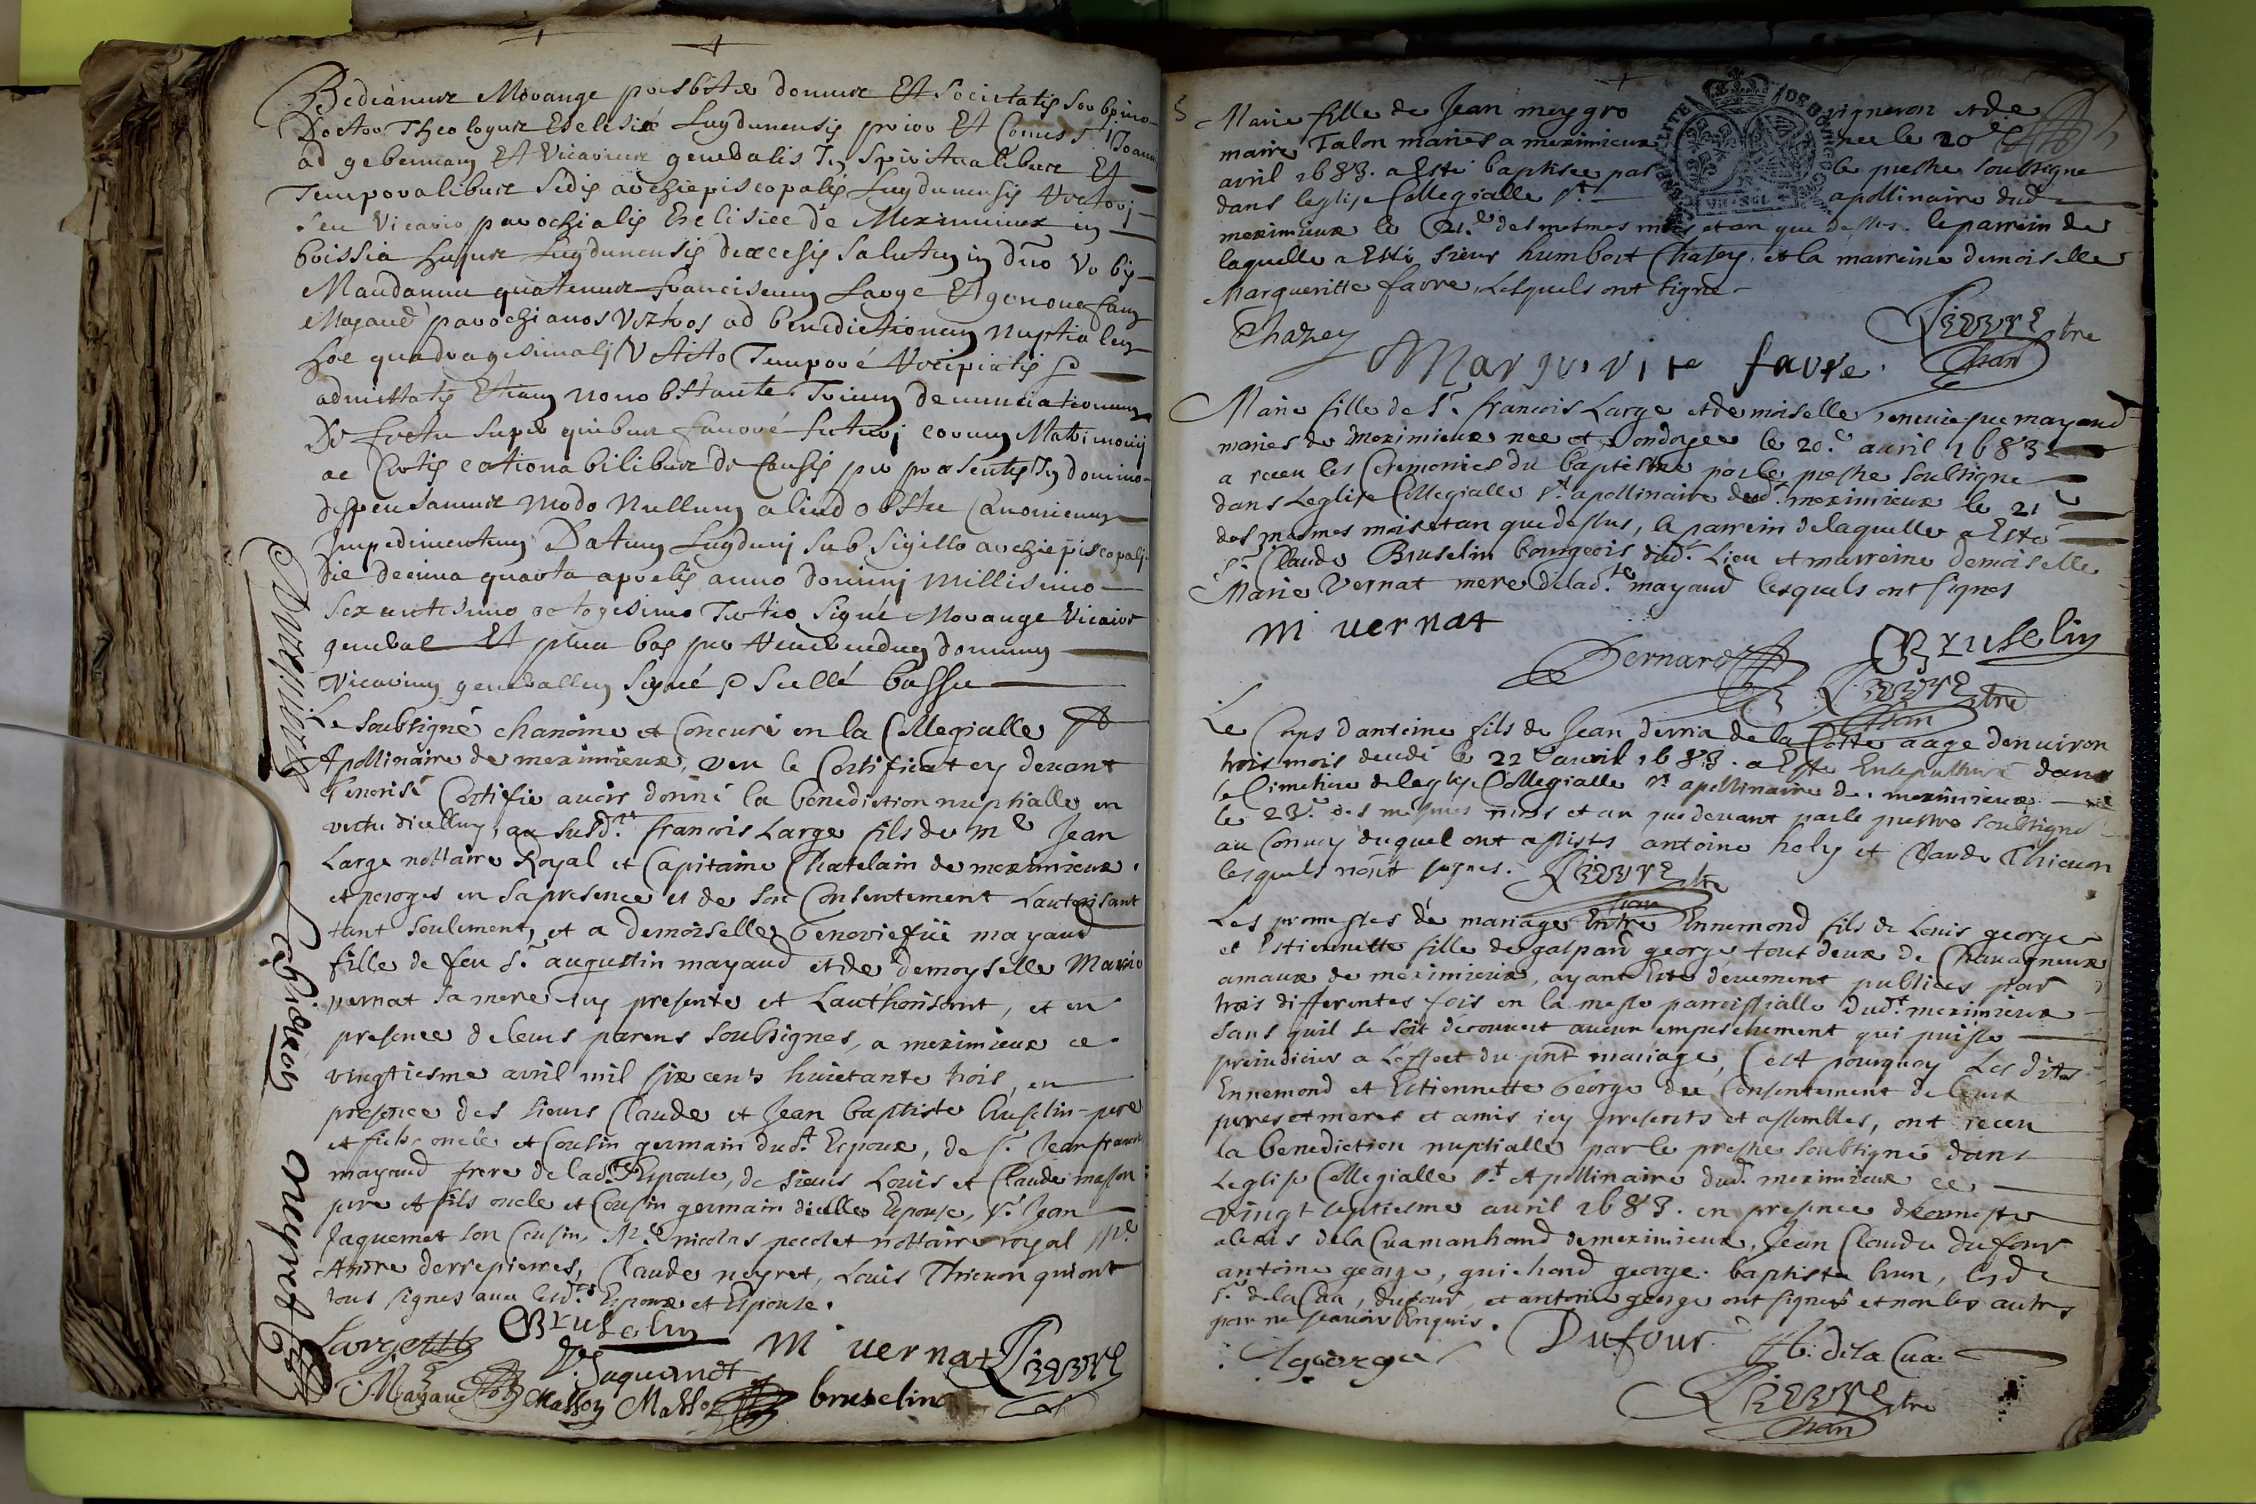 Bedianus Morange presbiter domus Et Societatis Sorbonico
Doctor Theologus Ecclesiae Lugdunensis prior Et Comes St Joannis
ad gebennam Et Vicarius generalis In Spiritualibus Et
Temporalibus Sedis archiepiscopalis Lugdunensis Rectori
seu Vicario parochialis Ecclesiae de Meximieux in
boissia hujus Lugdunensis diocesis Salutem in dno Vobis
Mandamus quatenus franciscum Large Et genovefam
Mayaud parochianos Vestros ad benedictionem nuptialem
hoc quadragesimali Vetito Tempore Recipiatis
admittatis Etiam nonobstante Trium denunciationum
Defectu super quibus favore futuri eorum Matrimonii
ac Certis rationabilibus de Causis per praesentes In domino
dispensamus modo nullum aliud obstet Canonicum
Impedimentum Datum Lugduni sub sigillo archiepiscopali
die decima quarta aprelis anno domini Millesimo
sexcentesimo octogesimo Tertio Signé Morange Vicaire
general Et plus bas per Reverendum dominum
Vicarium generallem signé Scellé basset
Le soubsigné chanoine et Concuré en la Collegialle St
Apollinaire de meximieux, veu le Certificat cy devant
Certifie avoir donné la benediction nuptialle en
vertu dicelluy, au susdt. francois Large fils de Me Jean
Large nottaire Royal et Capitaine Chatelain de meximieux
et peroges en sa presence et de son Consentement Lauthorisant
tant seulement, et a demoiselle Genoviefue mayaud
fille de feu Sr. augustin mayaud et de demoyselle Marie
vernat sa mere icy presente et Lauthorisant, et en
presence de leurs parens soubsignes, a meximieux ce
vingtiesme avril mil six cents huictante trois, en
presence des sieurs Claude et Jean baptiste bruselin pere
et fils oncle et Cousin germain dudt. Espoux, de Sr. Jean francois
mayaud frere de ladte Espouse, de sieurs Louis et Claude masson
pere et fils oncle et Cousin germain dicelle Espouse, Sr. Jean
Jaquemet son Cousin, Me nicolas pecolet nottaire royal Me
Andre derrepierres, Claude neyret, Louis Thievon qui ont
tous signes avec lesdts Espoux et Espouse.
Large Bruselin M vernat
Mayaud Jaquemet Masson Masso bruselin
neyret
Marie fille de Jean meygro vigneron et de
marie Talon maries a meximieux nee le 20e
avril 1683. a Esté baptisee par le prestre soubsigne
dans leglise Collegialle St apollinaire dud
meximieux le 21e des mesmes mois et an que dessus. le parrein de
laquelle a Esté sieur humbert Chazey, et la marreine demoiselle
Margueritte favre, Lesquels ont signé
Chazey
Marguerite favre
Marie fille de Sr. francois Large et demoiselle Jenevieque mayaud
maries de meximieux nee et ondoyee le 20e avril 1683
a receu les Ceremonies du baptesme par le prestre soubsigne
dans Leglise Collegialle St. apollinaire dudt meximieux le 21
des mesmes mois et an que dessus, le parrein de laquelle a Esté
Sr. Claude Bruselin bourgeois dudt. Lieu et marreine demoiselle
Marie Vernat mere de ladte mayaud lesquels ont signes
M vernat
Bernard Bruselin
Le Corps dantoine fils de Jean derria de la Coste aage denviron
trois mois decedé le 22e avril 1683. a Este Ensepulturé dans
le Cimetiere de leglise Collegialle St apollinaire de meximieux
le 23e des mesmes mois et an que devant par le prestre soubsigne
au Convoy duquel ont assistes antoine hely et Claude Thievon
lesquels nont signes.
Les promesses de mariage Entre Ennemond fils de Louis george
et Estiennette fille de gaspard george tout deux de Chavagneux
amaux de meximieux, ayant Este devement publiees par
trois differentes fois en la messe parroissialle dudt. meximieux
sans quil se soit decouvert aucun empeschement qui puisse
preiudicier a Leffect du pnt mariage, Cest pourquoy Les dits
Ennemond et Estiennette George du Consentement de Leurs
peres et meres et amis icy presents et assembles, ont receu
la benediction nuptialle par le prestre soubsigné dans
Leglise Collegialle St Apollinaire dud. meximieux ce
vingt septiesme avril 1683. en presence
alexis dela Cua manhand de meximieux, Jean Claude dufour
antoine george, guichard george. baptiste brun, lesd
Sr. dela Cua, dufour, et antoine george ont signes et non les autres
pour ne scavoir Enquis.
Ageorge Dufour dela Cua